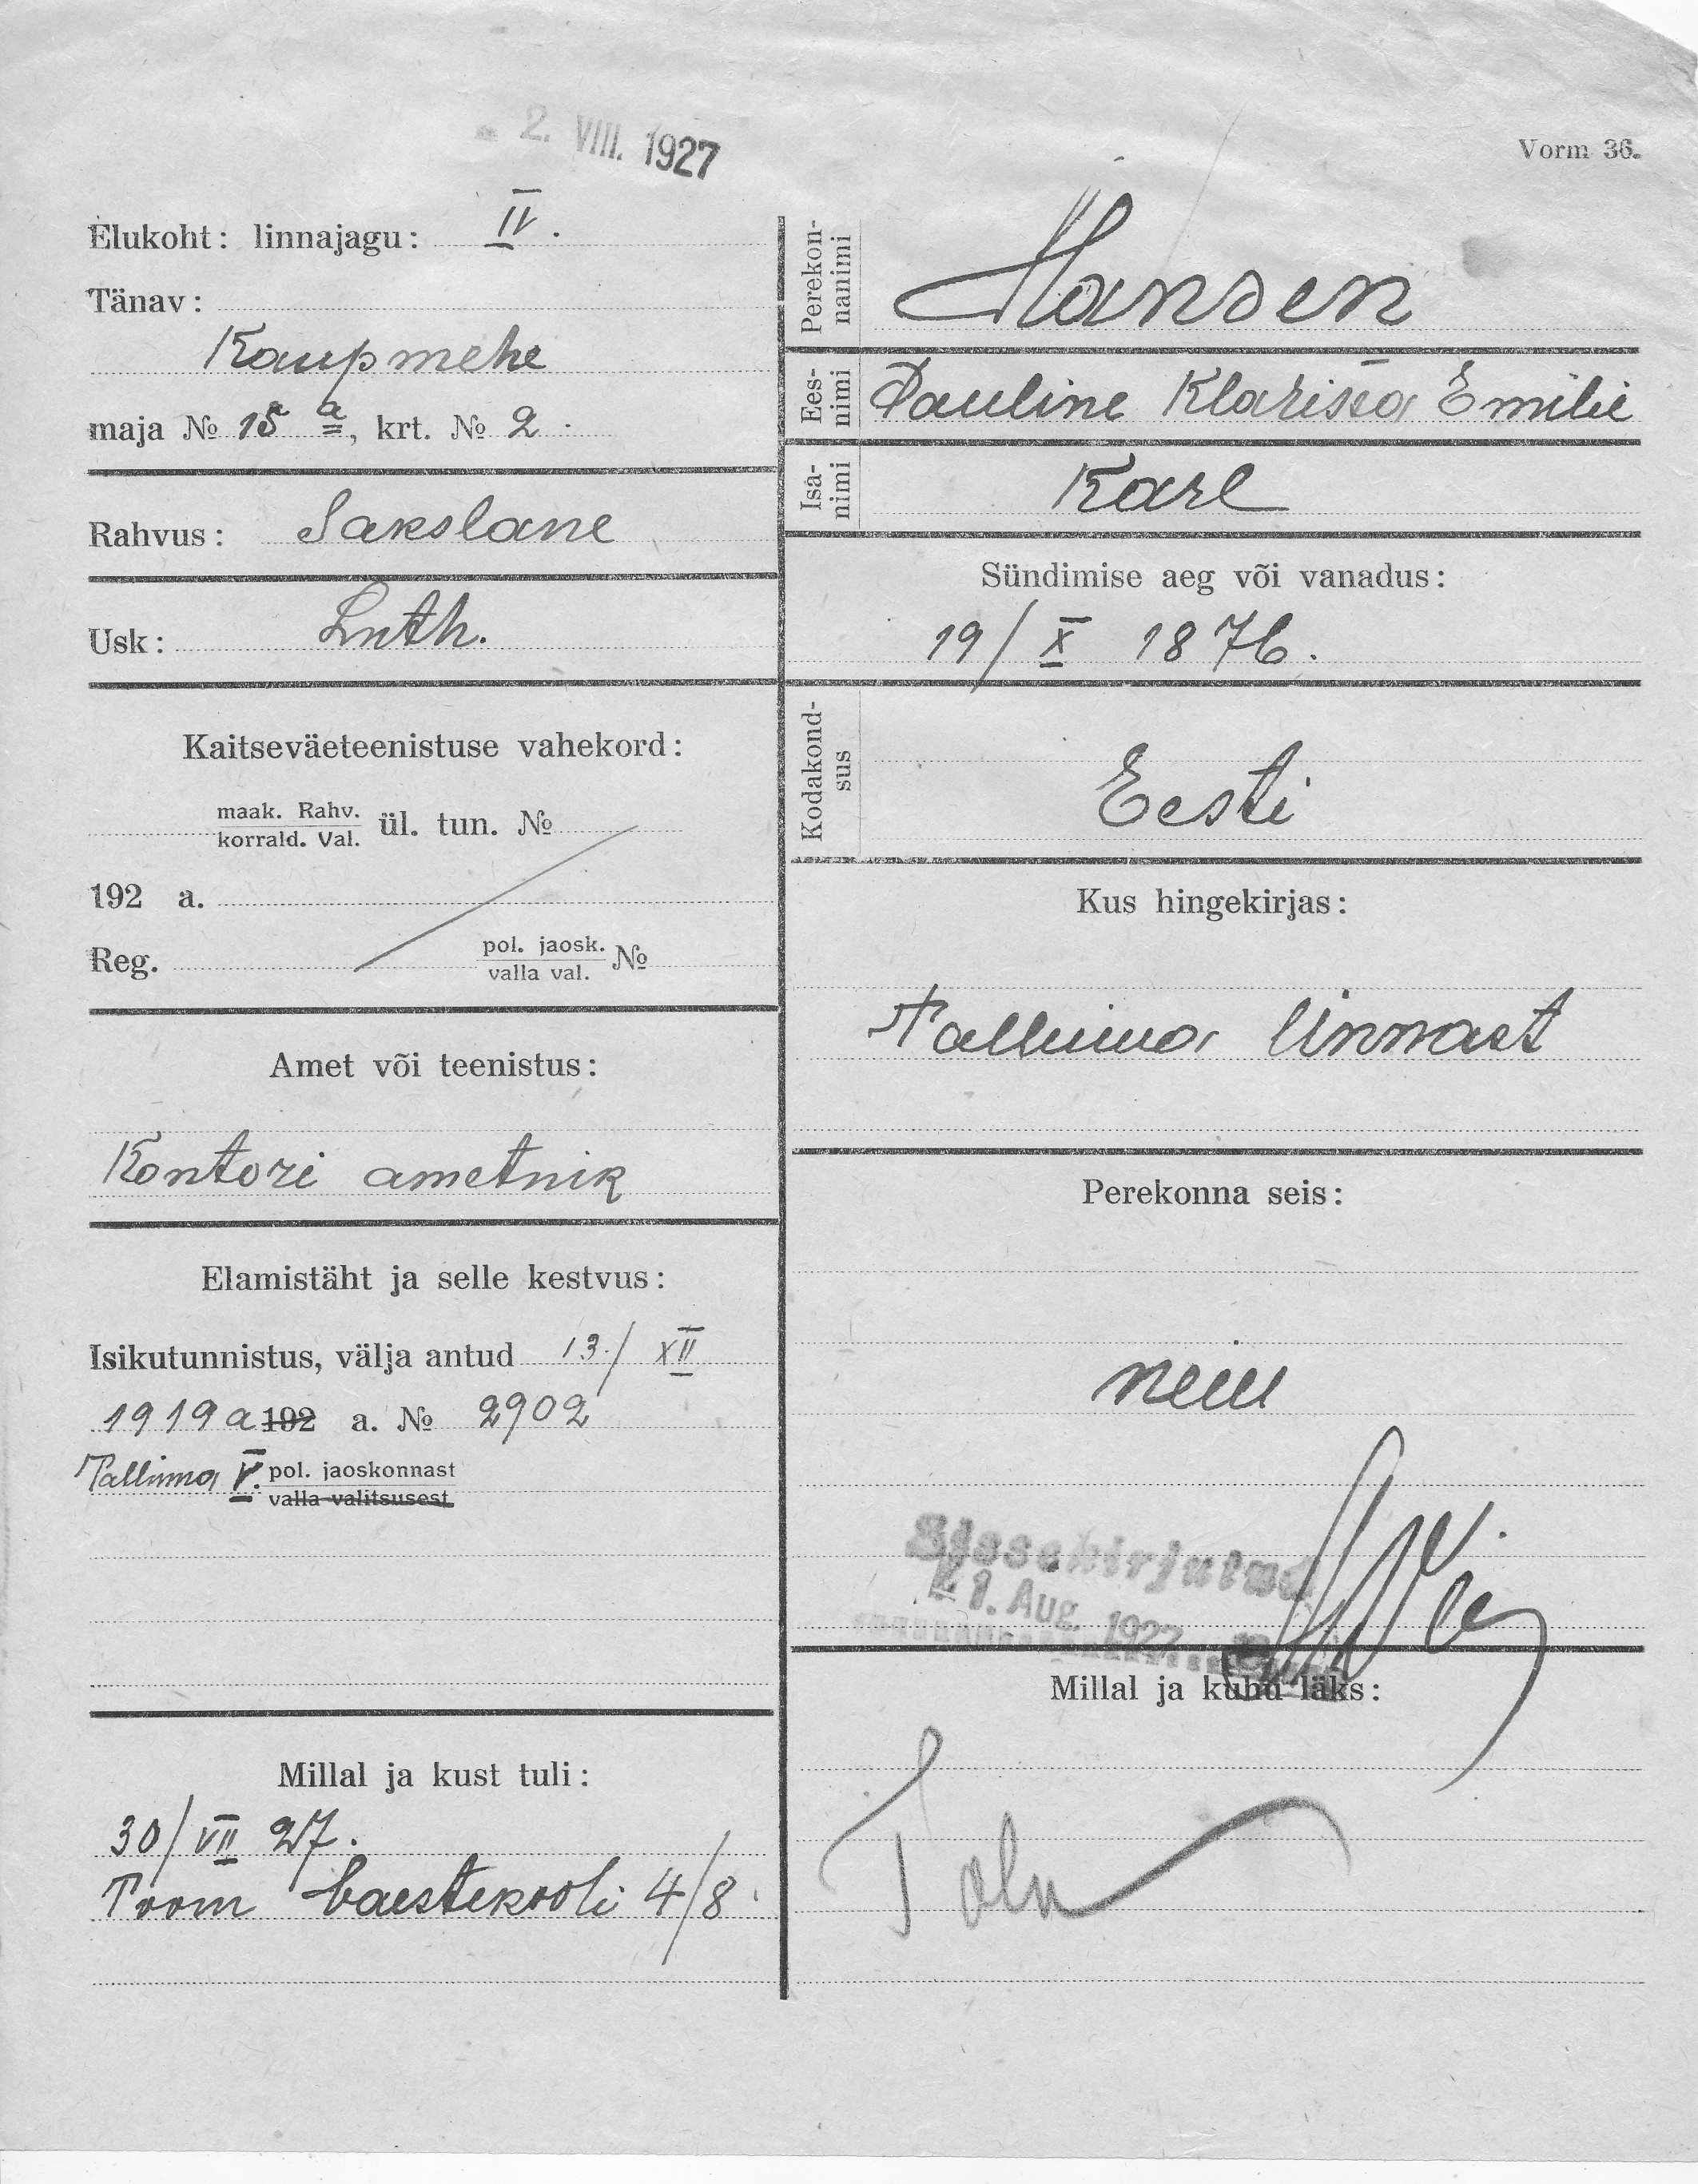 2. VIII. 1927
Vorm 36.
Elukoht: linnajagu: IV.
Tänav:
Kaupmehe
maja № 15 a, krt. № 2.
Rahvus: Sakslane
Usk: Luth.
Kaitseväeteenistuse vahekord:
maak. Rahv.
korrald. Val. ül. tun. №
192 a.
Reg. pol. jaosk.
valla val. №
Amet või teenistus:
Kontori ametnik
Elamistäht ja selle kestvus:
Isikutunnistus, välja antud 13./XII
1919 a 192 a. № 2902
Tallinna V. pol. jaoskonnast
valla valitsusest
Millal ja kust tuli:
30/VII 27.
Toom Vaestekooli 4/8
Perekon-
nanimi
Hansen
Ees-
nimi
Pauline Klarissa Emilie
Isa-
nimi
Karl
Sündimise aeg või vanadus:
19/X 1876.
Kodakond-
sus
Eesti
Kus hingekirjas:
Tallinna linnast
Perekonna seis:
neiu
Sissekirjutud
1. Aug. 1927
Millal ja kuhu läks: